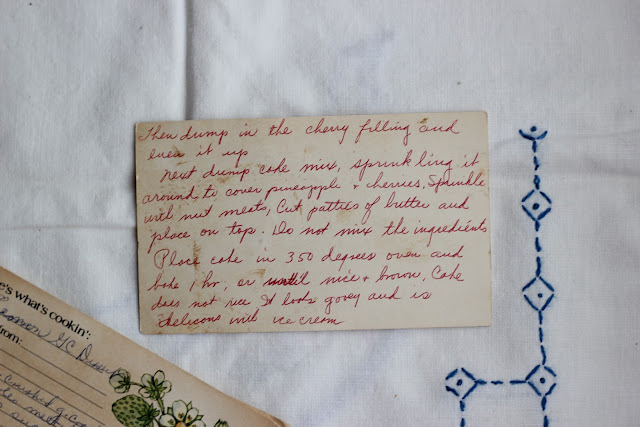 Then dump in the cherry filling and
even it up
next dump cake mix, sprinkling it
around to cover pineapple + cherries, Sprinkle
with nut meats, Cut patties of butter and
place on top. Do not mix the ingredients
Place cake in 350 degrees oven and
bake 1 hr, or until nice + brown, Cake
does not rise It looks gooey and is
delicious with ice cream
e's what's cookin':
from:
crushed